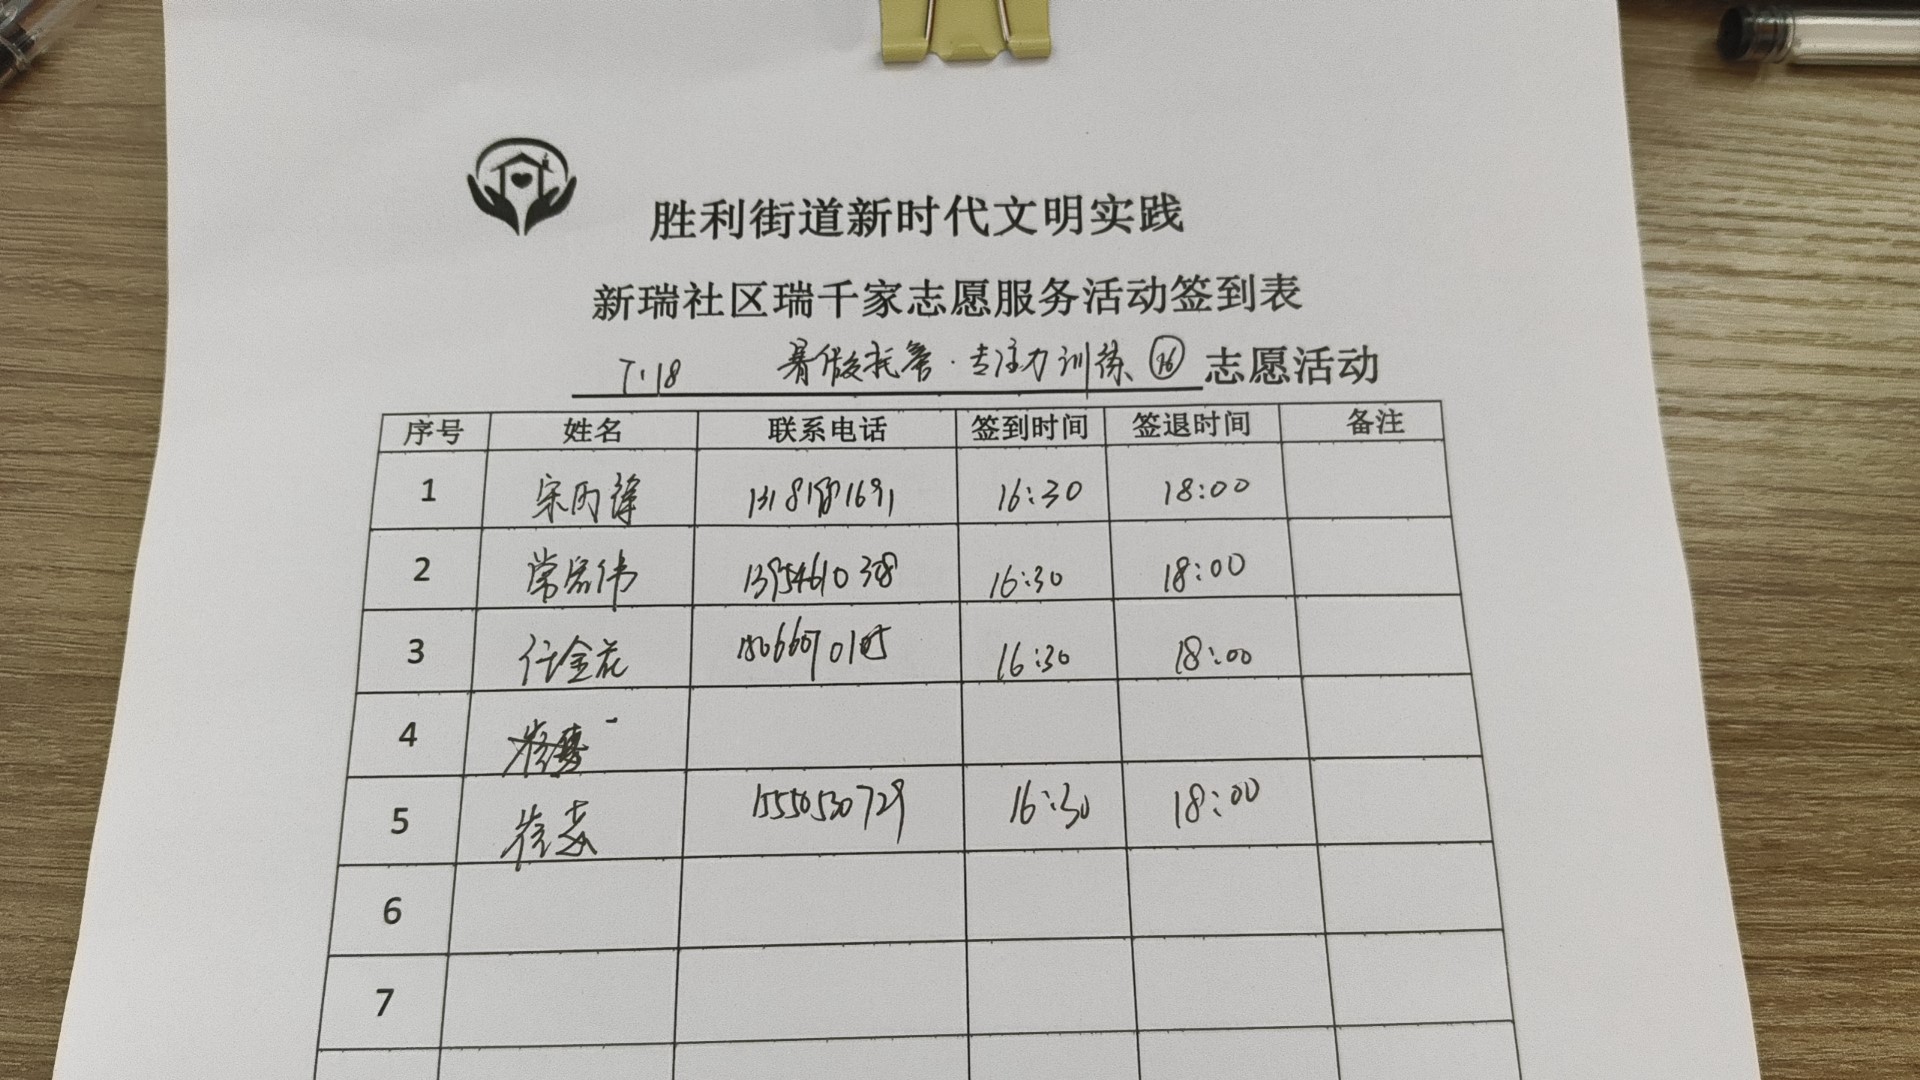 胜利街道新时代文明实践
新瑞社区瑞千家志愿服务活动签到表
7.18 暑假托管·专注力训练⑯ 志愿活动
序号 姓名 联系电话 签到时间 签退时间 备注
1 宋 16:30 18:00
2 常宏伟 16:30 18:00
3 任金花 16:30 18:00
4
5 崔蕊 15550530729 16:30 18:00
6
7